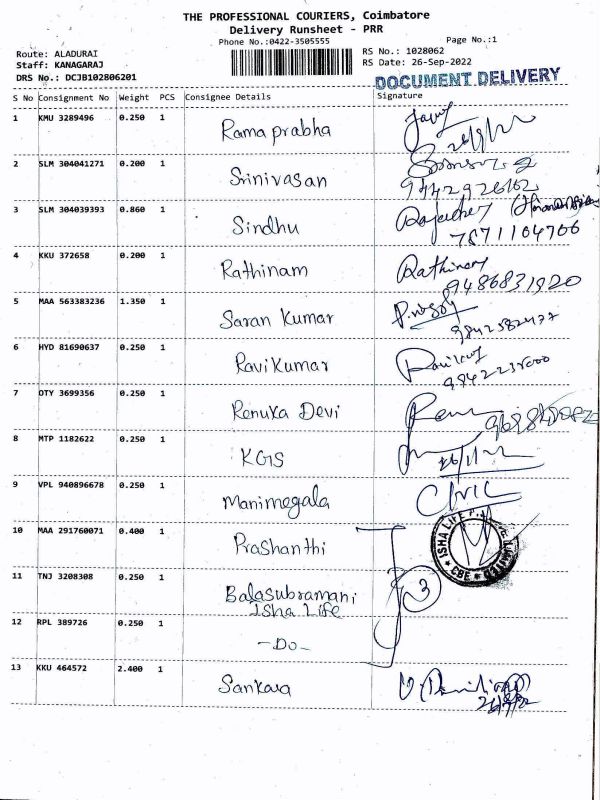 THE PROFESSIONAL COURIERS, Coimbatore
Delivery Runsheet - PRR
Phone No.:0422-3505555
Page No.:1
Route: ALADURAI
Staff: KANAGARAJ
DRS No.: DCJB102806201
RS No.: 1028062
RS Date: 26-Sep-2022
DOCUMENT DELIVERY
S No Consignment No Weight PCS Consignee Details Signature
1 KMU 3289496 0.250 1 Ramaprabha
2 SLM 304041271 0.200 1 Srinivasan
9442926162
3 SLM 304039393 0.860 1 Sindhu
7871104706
4 KKU 372658 0.200 1 Rathinam Rathinam
9486831920
5 MAA 563383236 1.350 1 Saran Kumar
9842382477
6 HYD 81690637 0.250 1 Ravikumar
7 OTY 3699356 0.250 1 Renuka Devi
8 MTP 1182622 0.250 1 KGS
9 VPL 940896678 0.250 1 Manimegala CIVIL
10 MAA 291760071 0.400 1 Prashanthi
ISHA LIFE
CBE
11 TNJ 3208308 0.250 1 Balasubramani 3
Isha Life
12 RPL 389726 0.250 1 -Do-
13 KKU 464572 2.400 1 Sankara